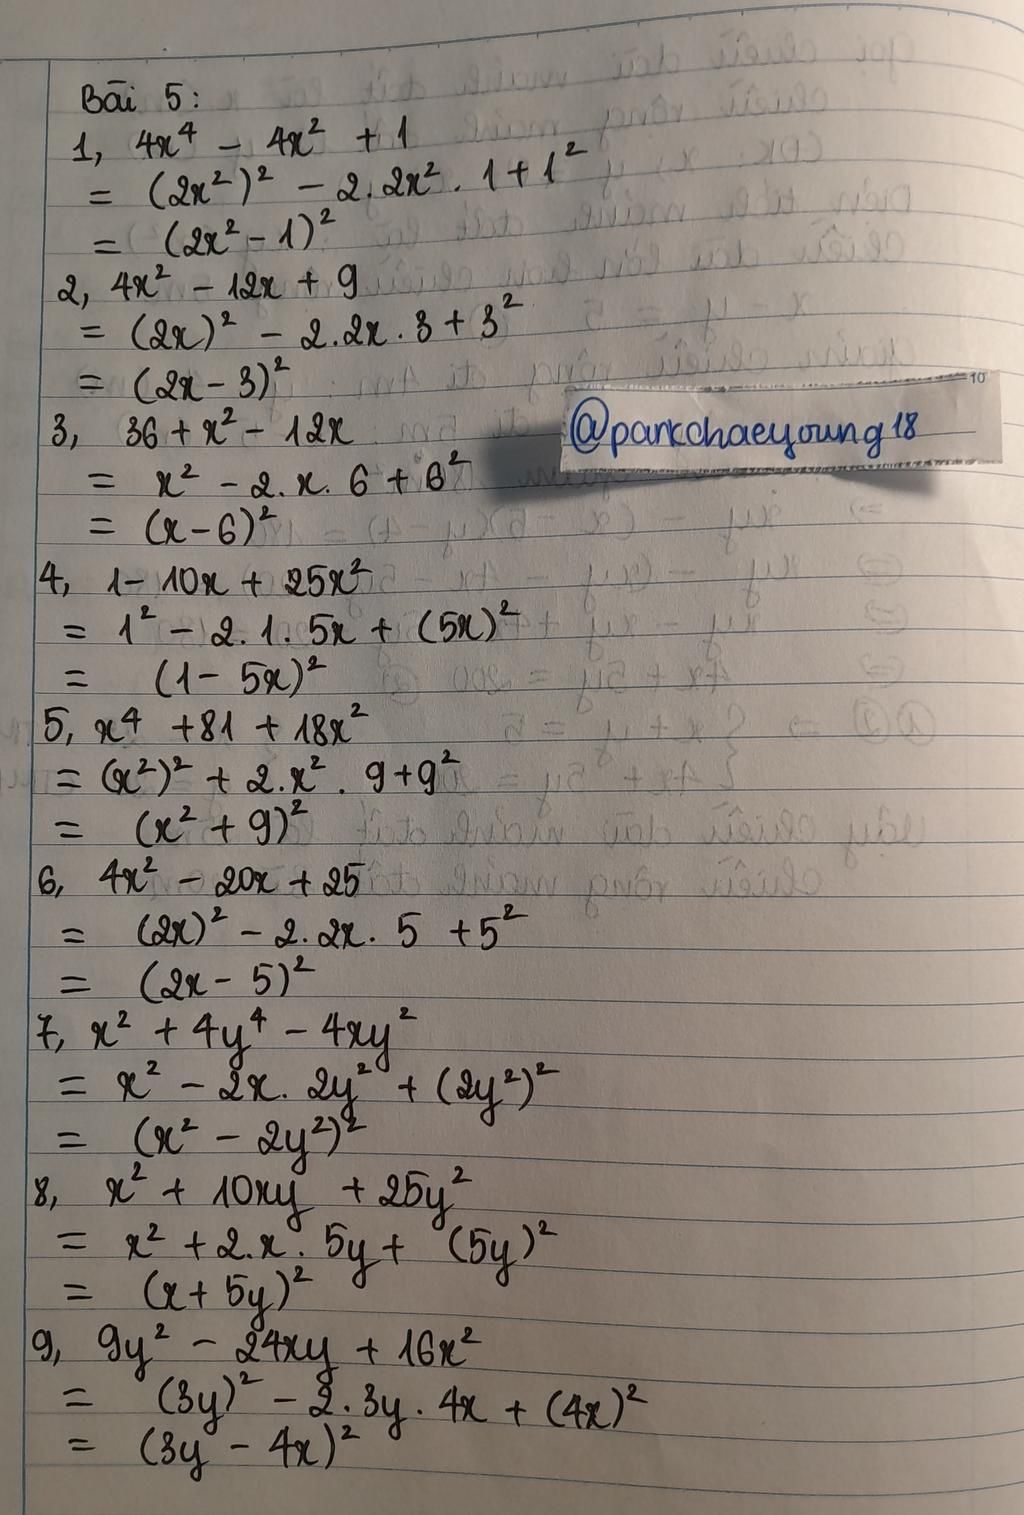 Bài 5:
1, 4x⁴ - 4x² + 1
= (2x²)² - 2.2x².1 + 1²
= (2x² - 1)²
2, 4x² - 12x + 9
= (2x)² - 2.2x.3 + 3²
= (2x - 3)²
10
@parkchaeyoung18
3, 36 + x² - 12x
= x² - 2.x.6 + 6²
= (x - 6)²
4, 1 - 10x + 25x²
= 1² - 2.1.5x + (5x)²
= (1 - 5x)²
5, x⁴ + 81 + 18x²
= (x²)² + 2.x².9 + 9²
= (x² + 9)²
6, 4x² - 20x + 25
= (2x)² - 2.2x.5 + 5²
= (2x - 5)²
7, x² + 4y⁴ - 4xy²
= x² - 2x.2y² + (2y²)²
= (x² - 2y²)²
8, x² + 10xy + 25y²
= x² + 2.x.5y + (5y)²
= (x + 5y)²
9, 9y² - 24xy + 16x²
= (3y)² - 2.3y.4x + (4x)²
= (3y - 4x)²